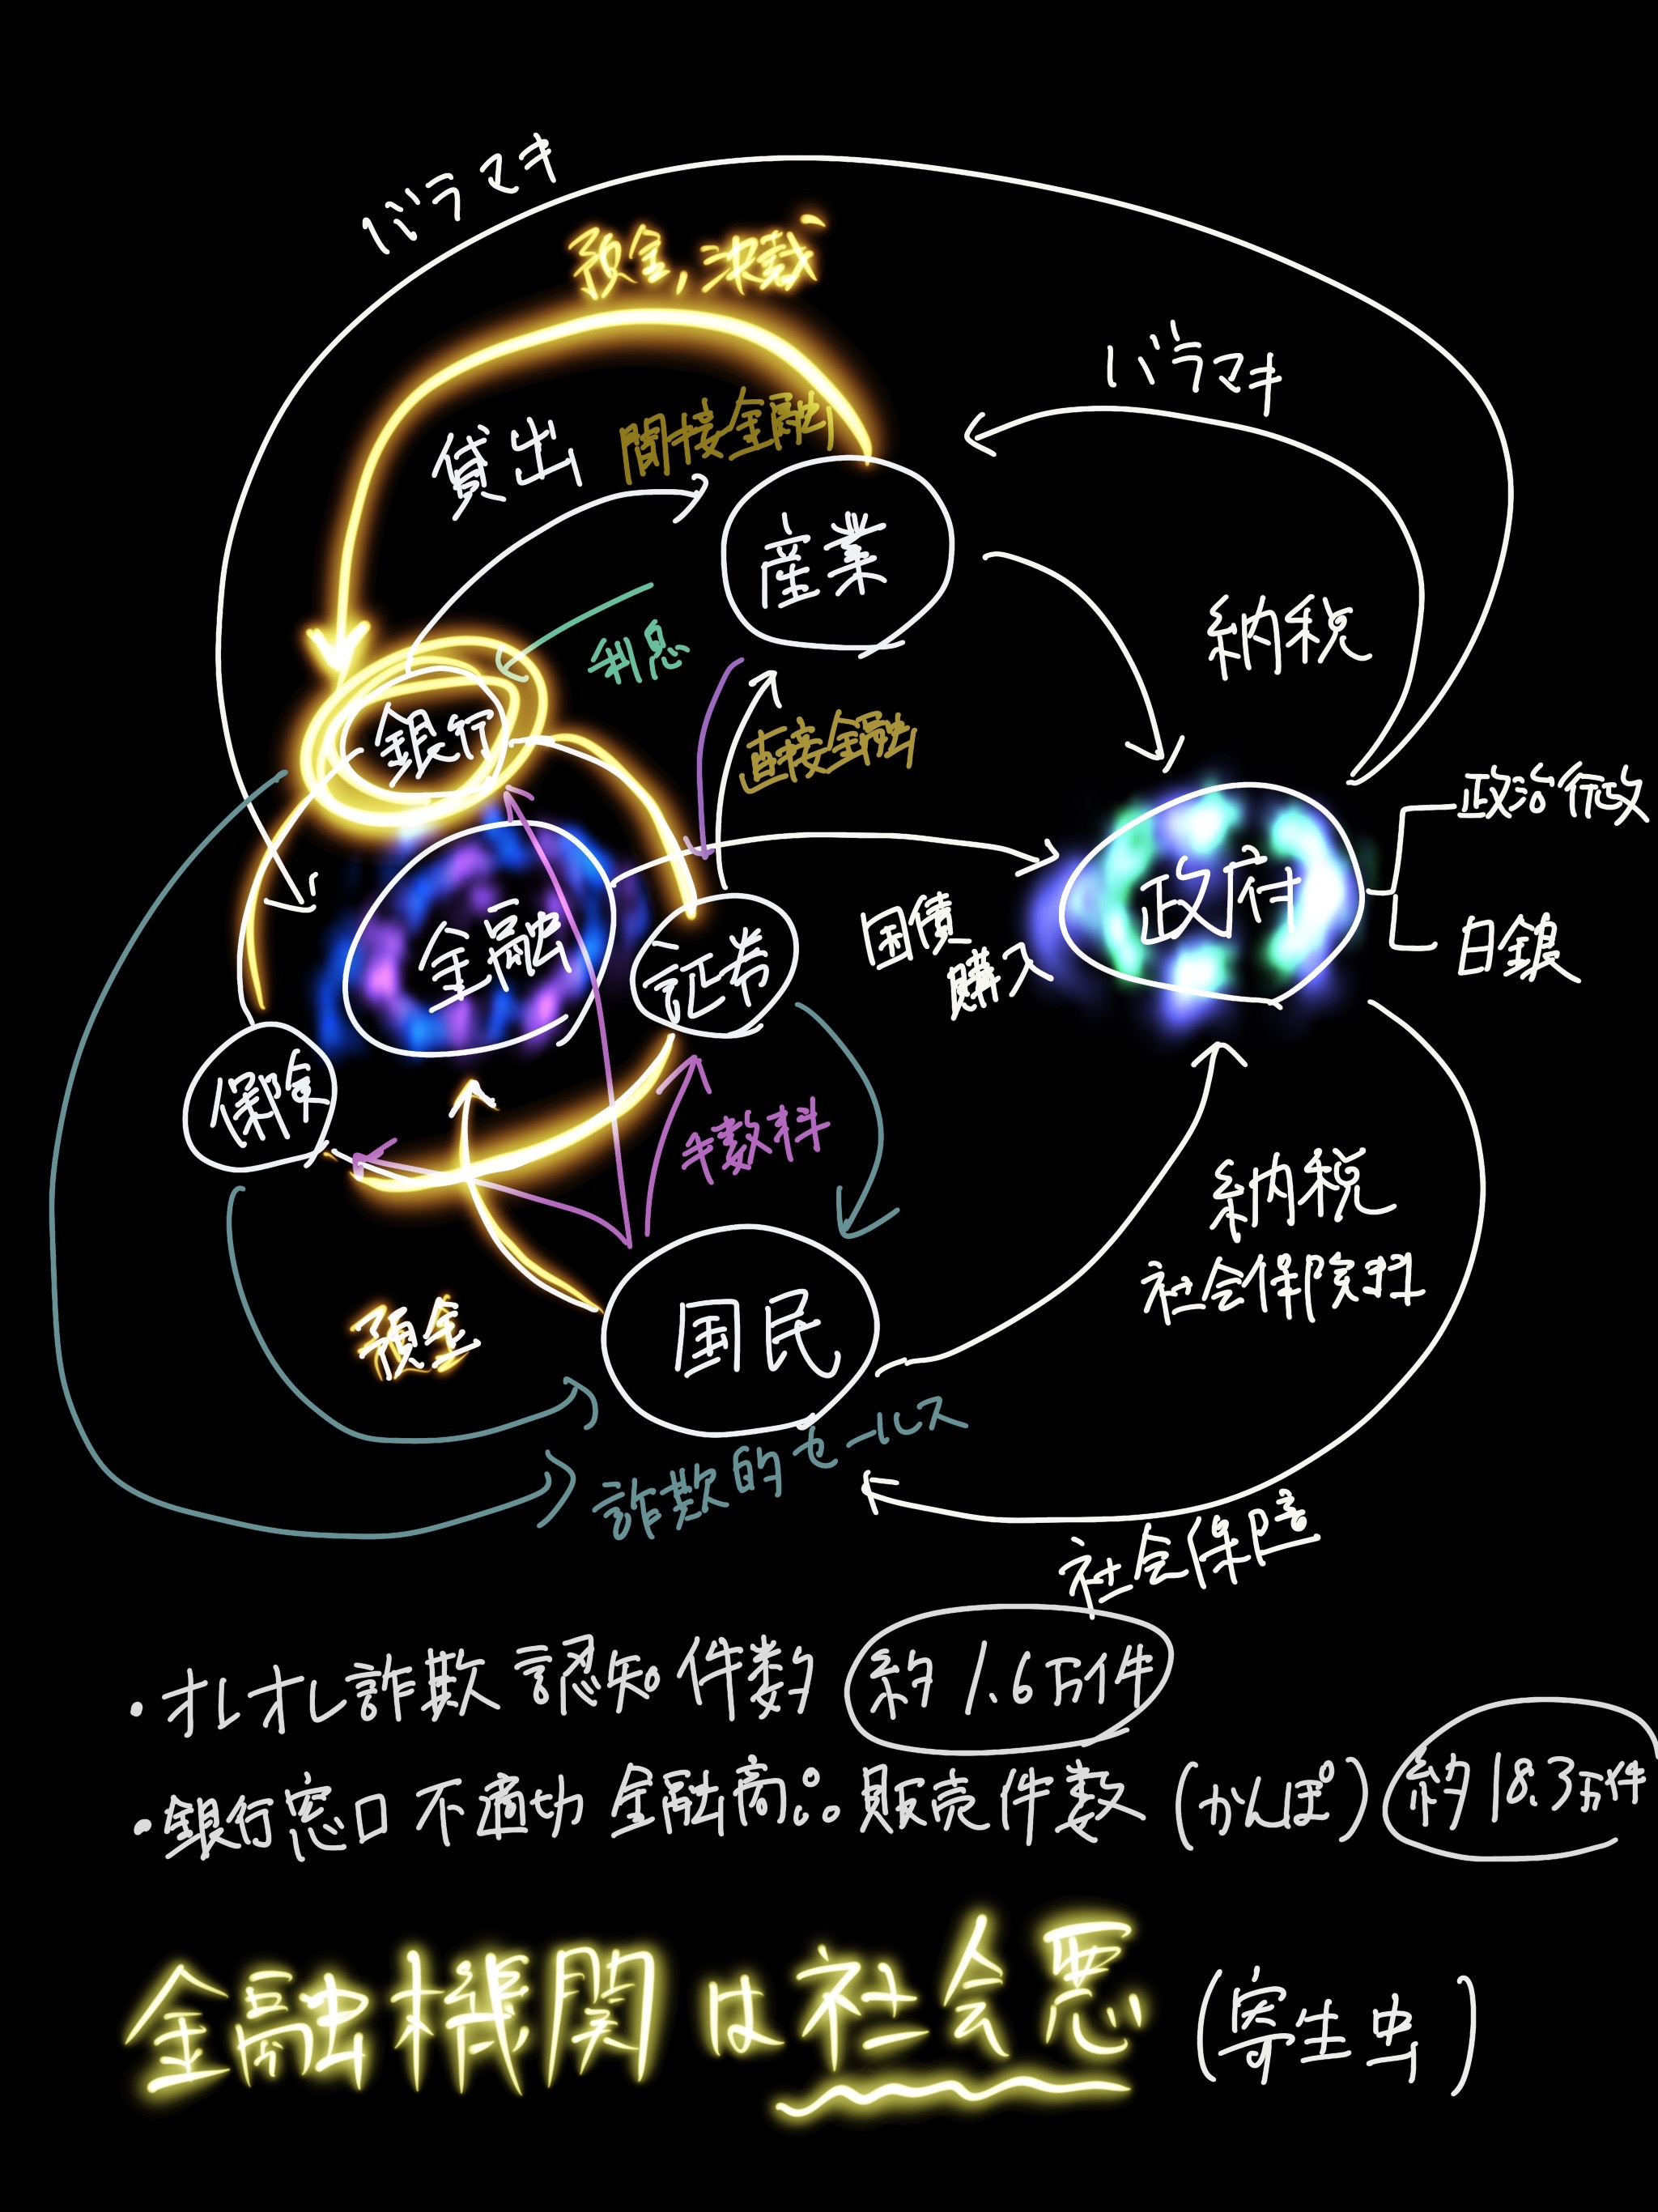 バラマキ
預金,決裁
バラマキ
貸出 間接金融
産業
納税
利息
銀行
直接金融
政治行政
政府
金融
証券
国債
購入
日銀
保険
手数料
納税
社会保険料
預金
国民
詐欺的セールス
社会保障
・オレオレ詐欺 認知件数 約1.6万件
・銀行窓口 不適切 金融商品販売件数 (かんぽ) 約18.3万件
金融機関は社会悪 (寄生虫)